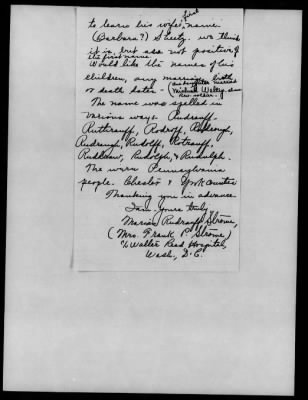 first
to learn his wife's name.
(Barbara?) Sheetz. we think
it is, but are not positive of
the first name.
Would like the names of his
children, any marriage, birth
or death dates - (his daughter married
Michael Walter, a
Rev. soldier.)
The name was spelled in
various ways. Rudrauff,
Ruthrauff, Rodroff, Rudrough,
Rudraugh, Rudolff, Rotrauff,
Rudraw, Rudolph, & Rudulph.
The were Pennsylvania
people. Chester & York counties
Thanking you in advance.
I am, yours truly,
Marion Rudrauff Strome,
(Mrs. Frank P. Strome)
c/o Walter Reed Hospital,
Wash., D.C.